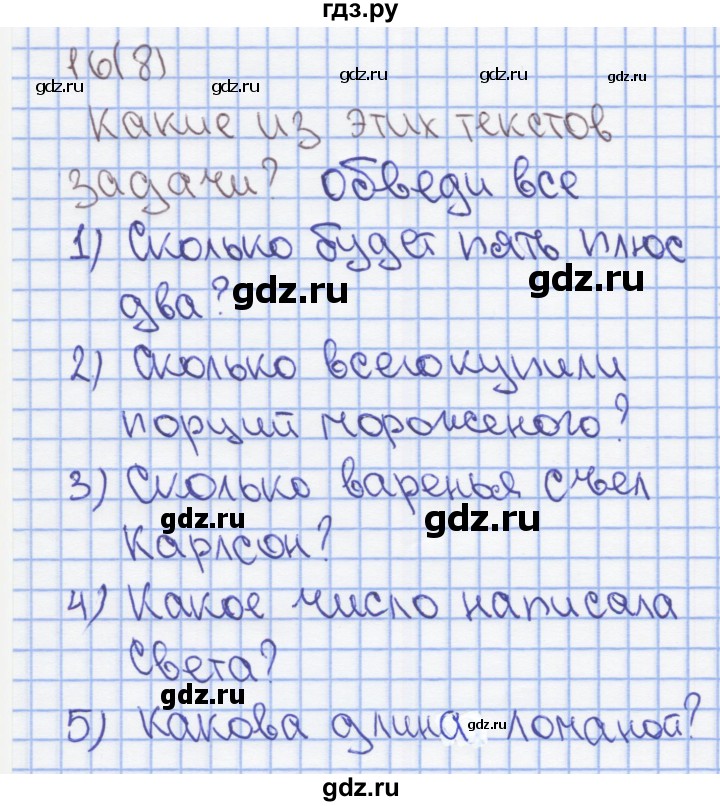 гдз.ру
16(8)
gdz.ru gdz.ru gdz.ru gdz.ru
Какие из этих текстов
задачи? Обведи все
1) Сколько будет пять плюс
gdz.ru gdz.ru
два?
2) Сколько всего купили
порций мороженого?
3) Сколько варенья съел
gdz.ru gdz.ru
Карлсон?
4) Какое число написала
Света?
gdz.ru gdz.ru
5) Какова длина gdz.ru ломаной?
gdz.ru